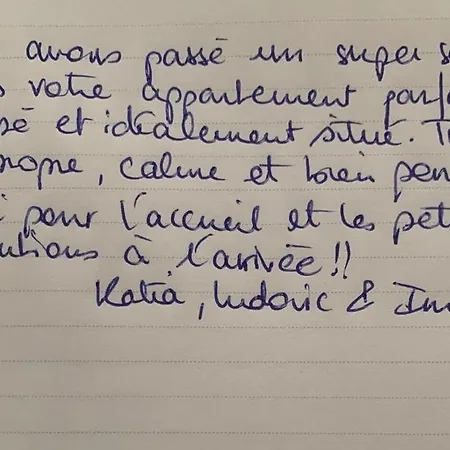 avons passé un super s
s votre appartement parf
sé et idéalement situé. T
ropre, calme et bien pen
i pour l'accueil et les pet
utions à l'arrivée !!
Katia, Ludovic &